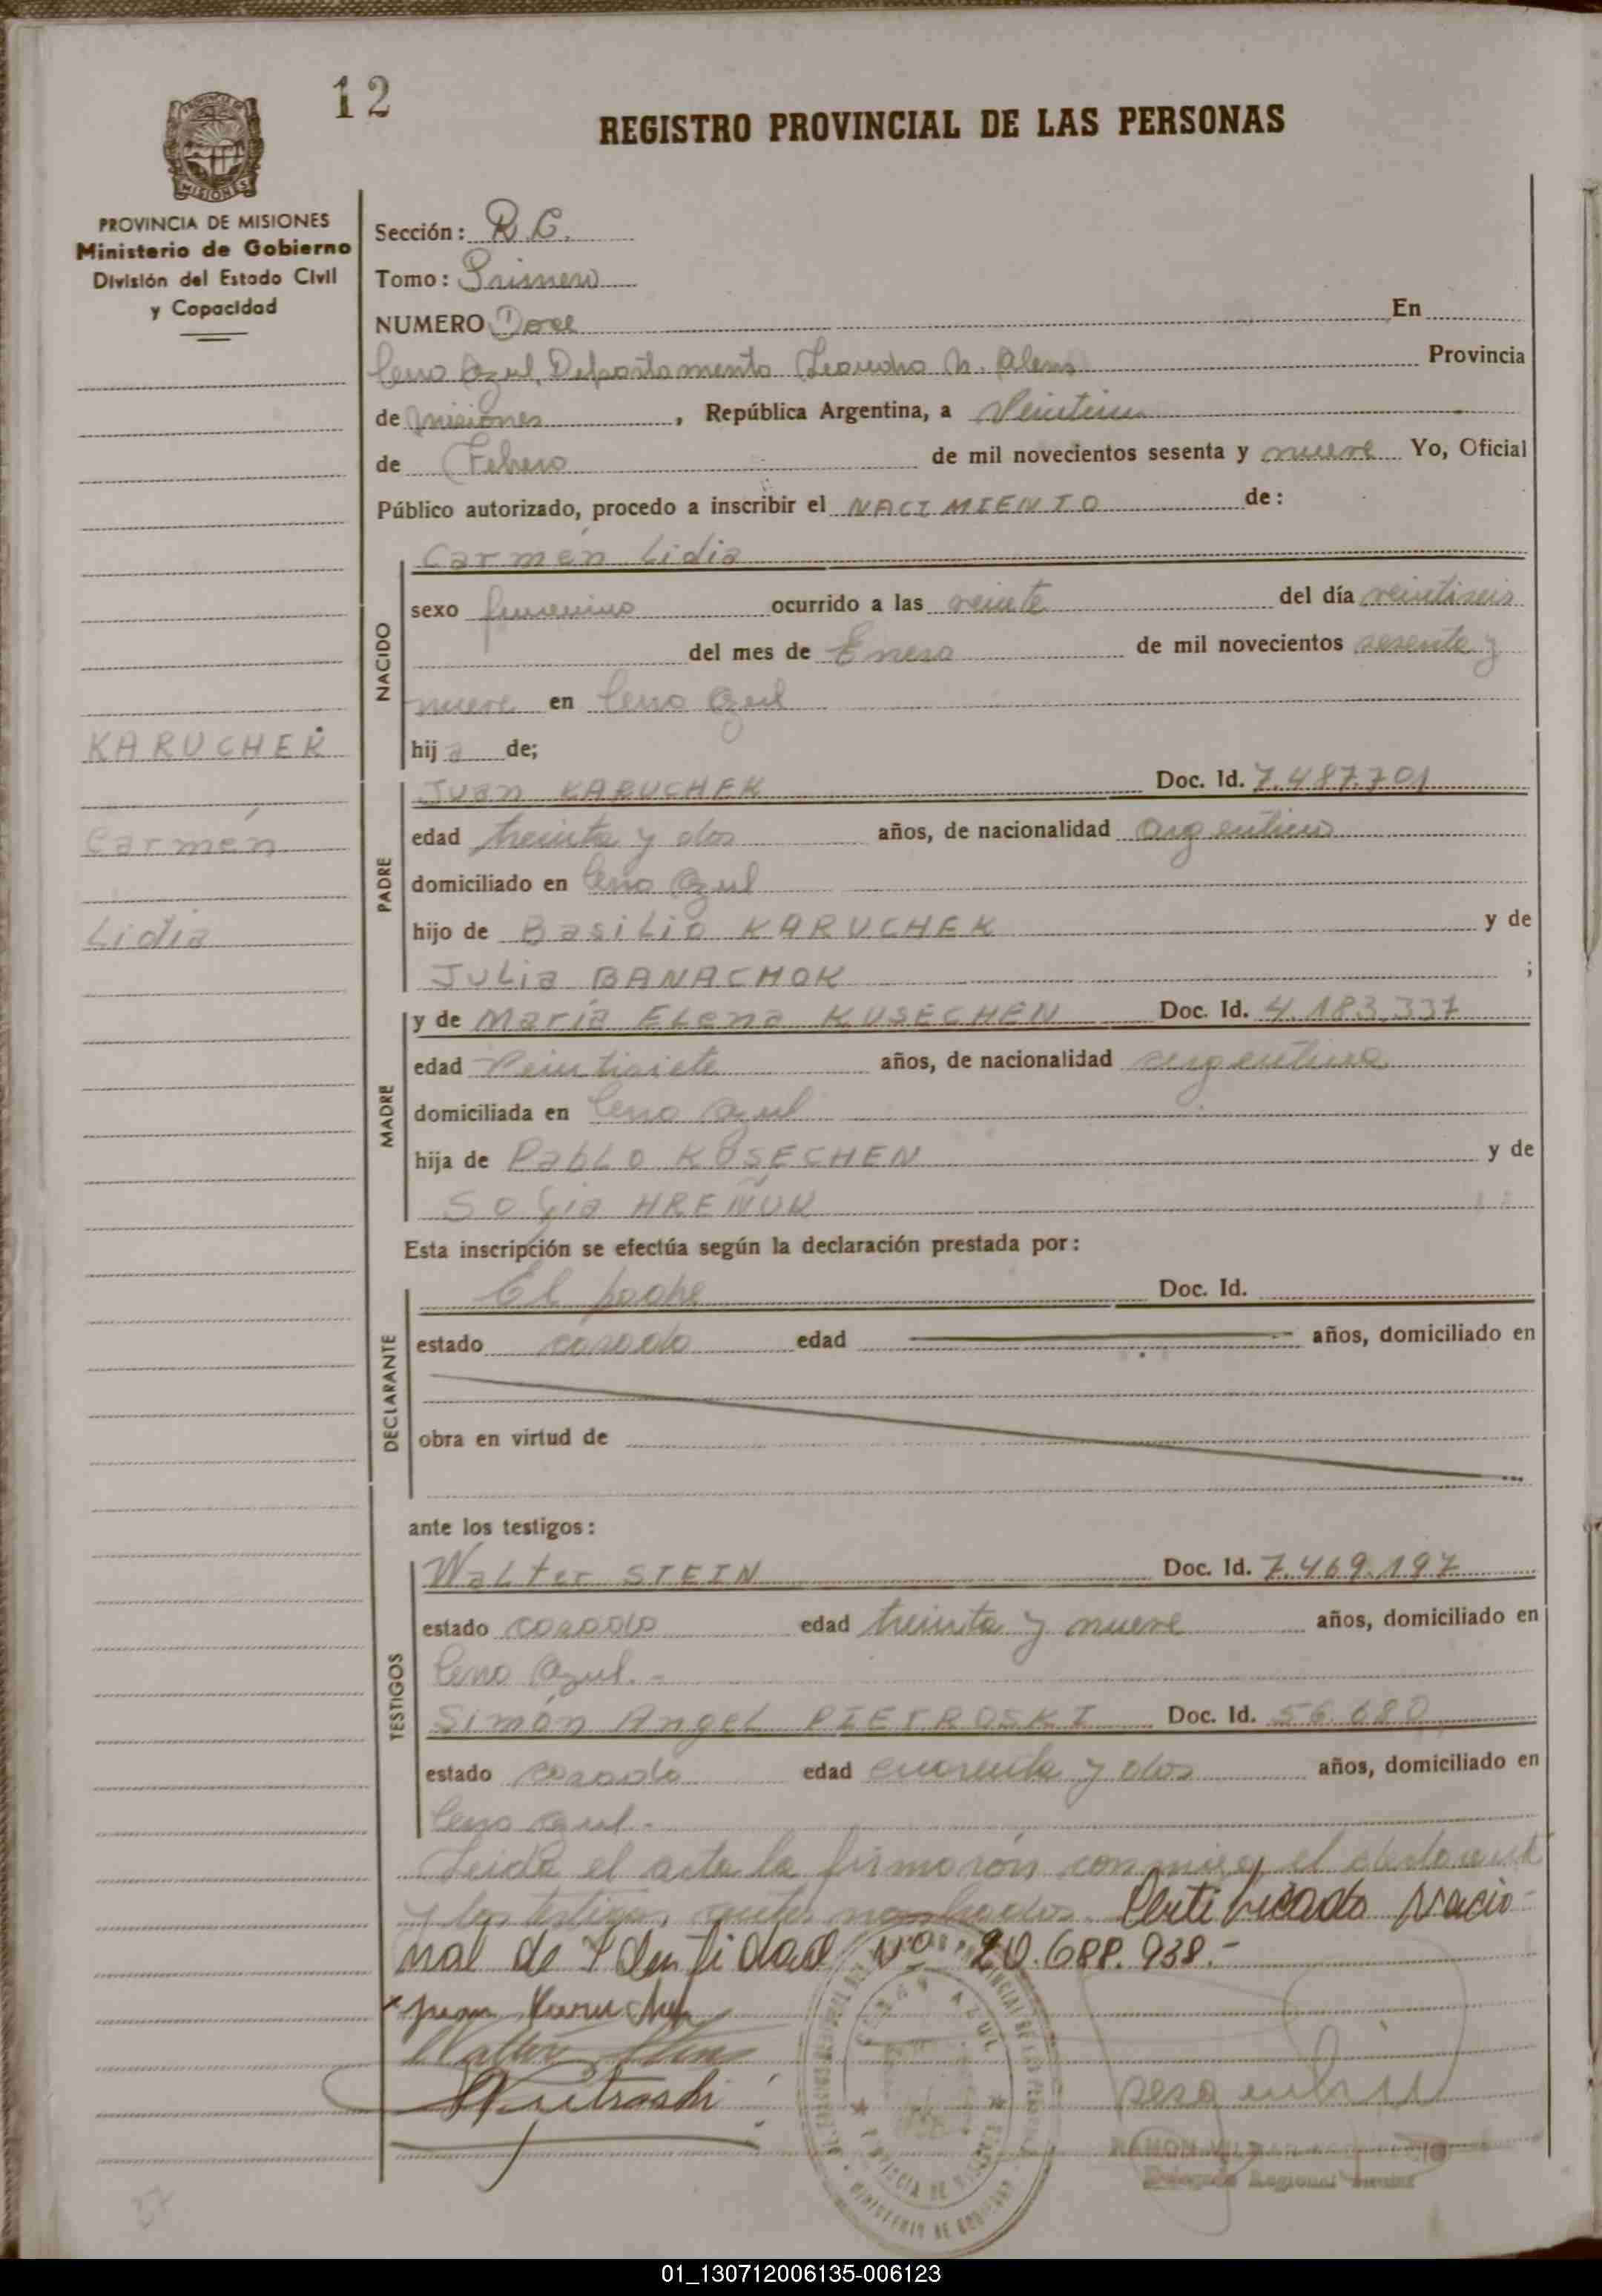 12
REGISTRO PROVINCIAL DE LAS PERSONAS
MISIONES
PROVINCIA DE MISIONES
Ministerio de Gobierno
División del Estado Civil
y Capacidad
KARUCHEK
Carmen
Lidia
Sección: R.C.
Tomo: Primero
NUMERO Doce En
Cerro Azul, Departamento Leandro N. Alem Provincia
de Misiones, República Argentina, a Veintiun
de Febrero de mil novecientos sesenta y nueve Yo, Oficial
Público autorizado, procedo a inscribir el NACIMIENTO de:
NACIDO
Carmen Lidia
sexo femenino ocurrido a las veinte del día veintiseis
del mes de Enero de mil novecientos sesenta y
nueve en Cerro Azul
hij a de;
PADRE
Juan KARUCHEK Doc. Id. 7.487.701
edad treinta y dos años, de nacionalidad argentino
domiciliado en Cerro Azul
hijo de Basilio KARUCHEK y de
Julia BANACHOK ;
MADRE
y de María Elena KUSECHEN Doc. Id. 4.183.337
edad Veintisiete años, de nacionalidad argentina
domiciliada en Cerro Azul
hija de Pablo KUSECHEN y de
Sofia HREÑUK
Esta inscripción se efectúa según la declaración prestada por:
DECLARANTE
El padre Doc. Id.
estado casado edad años, domiciliado en
obra en virtud de
ante los testigos:
TESTIGOS
Walter STEIN Doc. Id. 7.469.197
estado casado edad treinta y nueve años, domiciliado en
Cerro Azul.-
Simón Angel PIETROSKI Doc. Id. 56.680
estado casado edad cuarenta y dos años, domiciliado en
Cerro Azul.-
Leida el acta la firmarón conmigo el declarante
y los testigos antes nombrados. Certificado Nacio-
nal de Identidad Nº 20.688.938.-
Juan Karuchek
Walter Stein
Pietroski
CERRO AZUL
PROVINCIA DE MISIONES
MINISTERIO DE GOBIERNO
RAMON
Delegado Regional
01_130712006135-006123